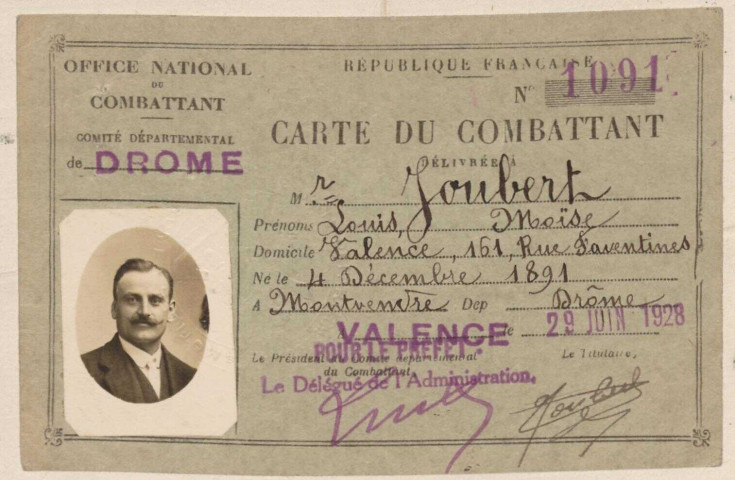 OFFICE NATIONAL
DU
COMBATTANT
COMITÉ DÉPARTEMENTAL
de DROME
RÉPUBLIQUE FRANÇAISE
N° 1091
CARTE DU COMBATTANT
DÉLIVRÉE A
M r Joubert
Prénoms Louis, Moïse
Domicile Valence, 161, Rue Faventines
Né le 4 Décembre 1891
A Montvendre Dep Drôme
VALENCE le 29 JUIN 1928
POUR LE PREFET.
Le Président du Comité départemental
du Combattant,
Le Délégué de l'Administration,
Le Titulaire,
Joubert